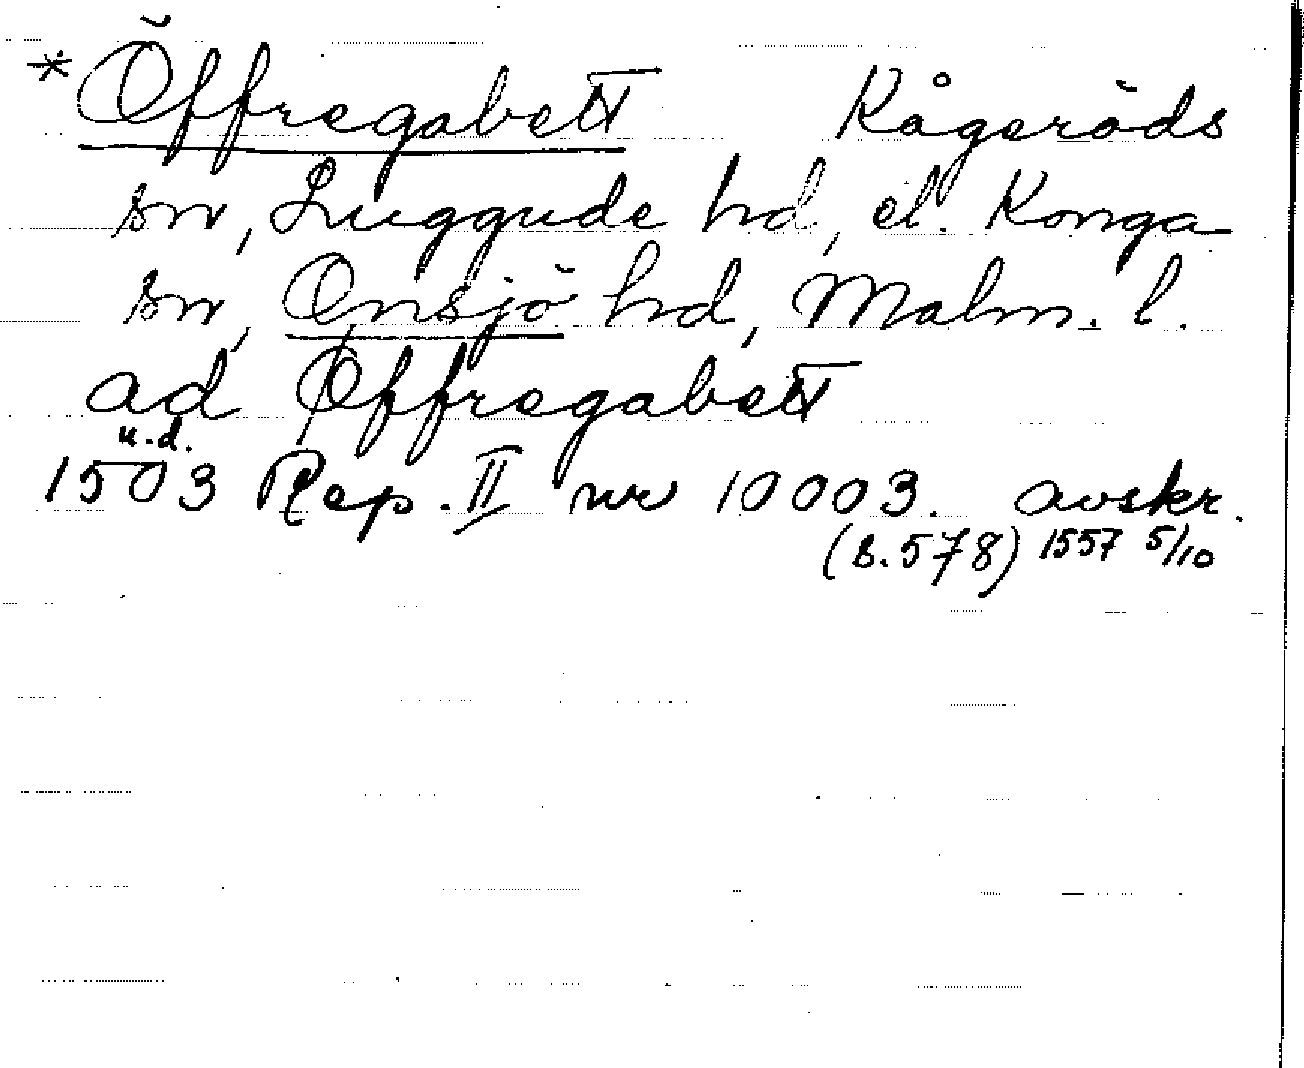 *Öffregabett Kågeröds
sn, Luggude hd, el. Konga
sn, Onsjö hd, Malm. l.
ad Øffregabett
u.d.
1503 Rep. II nr 10003. avskr.
(s. 578) 1557 5/10